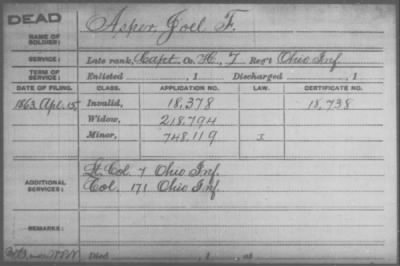 DEAD
Asper Joel F.
NAME OF SOLDIER:
SERVICE: Late rank, Capt. Co. H, 7 Reg't Ohio Inf.
TERM OF SERVICE: Enlisted , 1 Discharged , 1
DATE OF FILING. CLASS. APPLICATION NO. LAW. CERTIFICATE NO.
1863, Apl. 15 Invalid, 18,378 18,738
Widow, 218,794
Minor, 748,119 I
Lt. Col. 7 Ohio Inf.
ADDITIONAL SERVICES: Col. 171 Ohio Inf.
REMARKS:
Died , 1 , at